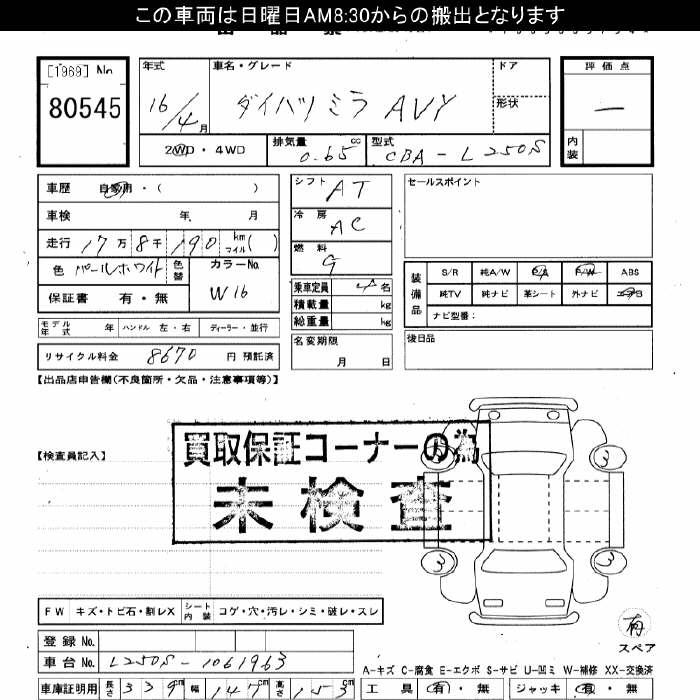 この車両は日曜日AM8:30からの搬出となります
[1969] No. 80545
年式 16/4月
車名・グレード ダイハツ ミラ AVY
ドア
形状
評価点 —
内装
2WD・4WD
排気量 0.65 cc
型式 CBA-L250S
車歴 自家用・( )
車検 年 月
走行 17万8千190 km マイル( )
色 パールホワイト 色替
カラーNo. W16
保証書 有・無
モデル年式 年 ハンドル 左・右 ディーラー・並行
リサイクル料金 8670 円 預託済
シフト AT
冷房 AC
燃料 G
乗車定員 4名
積載量 kg
総重量 kg
名変期限 月 日
セールスポイント
装備品
S/R 純A/W P/S P/W ABS
純TV 純ナビ 革シート 外ナビ エアB
ナビ型番:
後日品
【出品店申告欄(不良箇所・欠品・注意事項等)】
【検査員記入】
買取保証コーナーの為
未検査
3 3
3 3
FW キズ・トビ石・割レX シート内装 コゲ・穴・汚レ・シミ・破レ・スレ
登録No.
車台No. L250S-1061963
車庫証明用 長さ 339cm 幅 147cm 高さ 153cm
有
スペア
A-キズ C-腐食 E-エクボ S-サビ U-凹ミ W-補修 XX-交換済
工具 有・無 ジャッキ 有・無